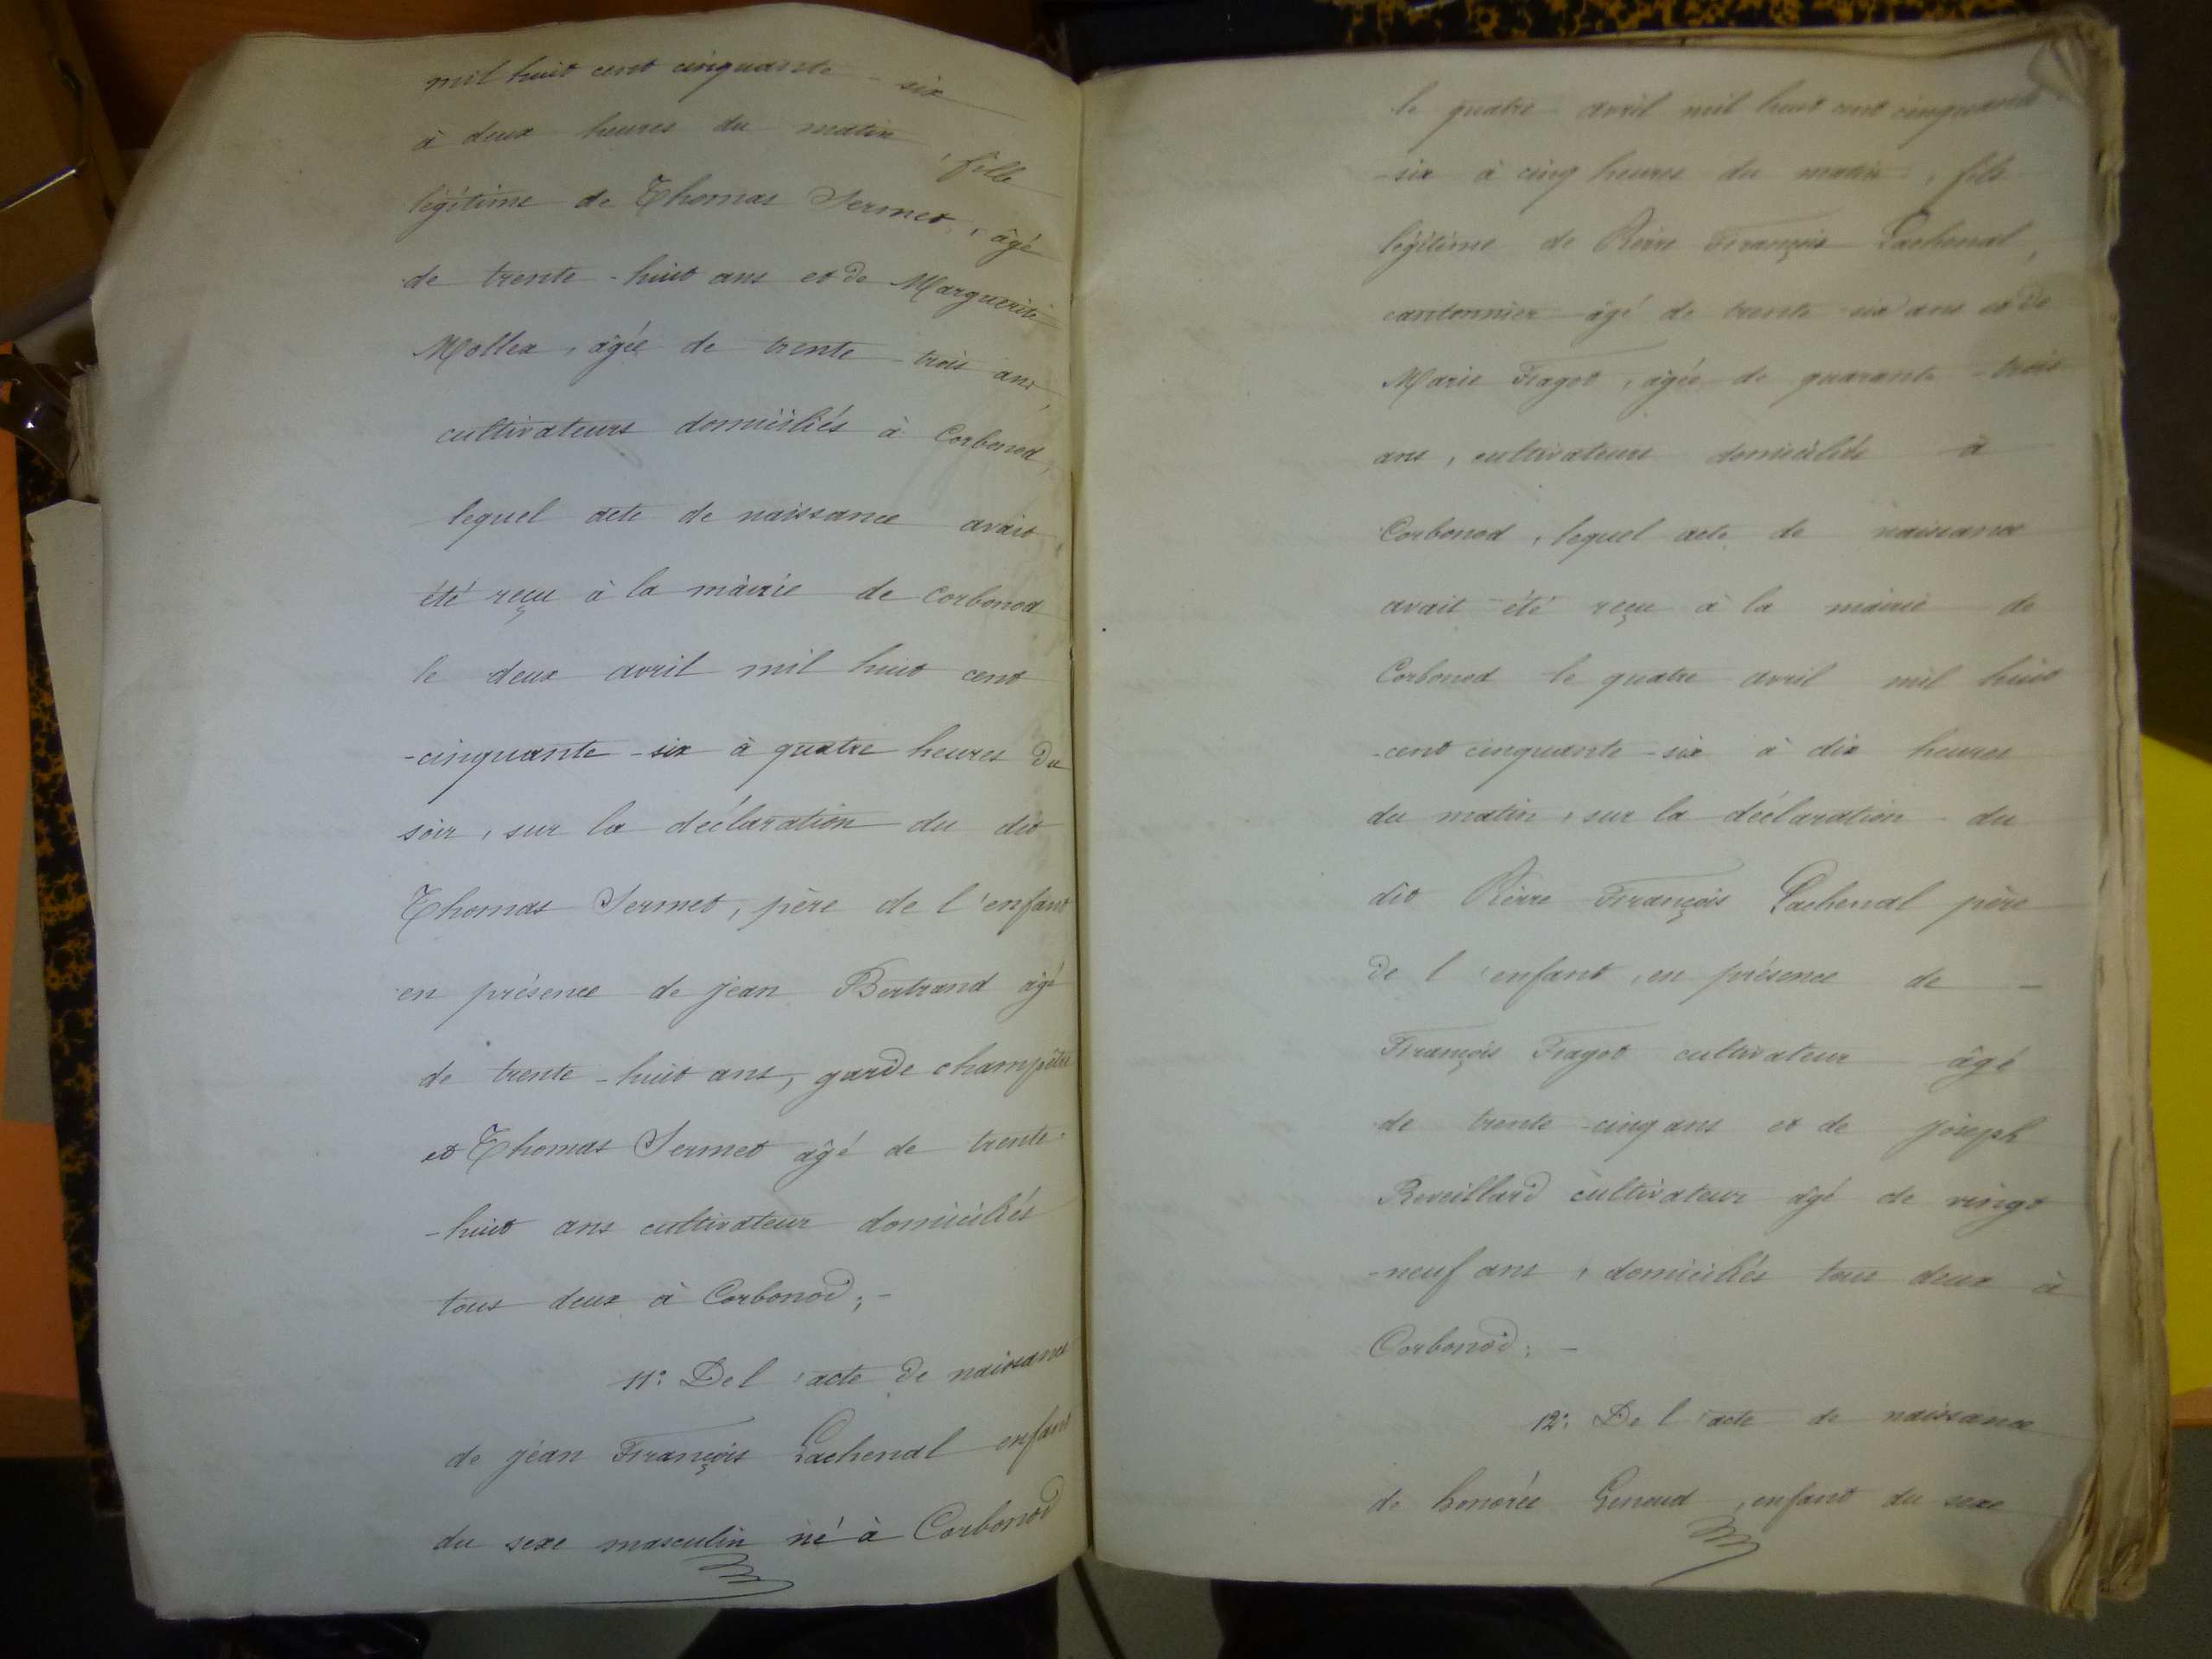 mil huit cent cinquante - six
à deux heures du matin, fille
légitime de Thomas Sermet, âgé
de trente - huit ans et de Marguerite
Mollex, âgée de trente - trois ans,
cultivateurs domiciliés à Corbonod,
lequel acte de naissance avait
été reçu à la mairie de Corbonod
le deux avril mil huit cent
-cinquante - six à quatre heures du
soir, sur la déclaration du dit
Thomas Sermet, père de l'enfant
en présence de jean Bertrand âgé
de trente - huit ans, garde champêtre
et Thomas Sermet âgé de trente-
-huit ans cultivateur domiciliés
tous deux à Corbonod; -
11° De l'acte de naissance
de jean François Lachenal enfant
du sexe masculin né à Corbonod
le quatre avril mil huit cent cinquante
-six à cinq heures du matin, fils
légitime de Pierre François Lachenal,
cantonnier âgé de trente six ans et de
Marie Fragot, âgée de quarante - trois
ans, cultivateurs domiciliés à
Corbonod, lequel acte de naissance
avait été reçu à la mairie de
Corbonod le quatre avril mil huit
-cent cinquante - six à dix heures
du matin, sur la déclaration du
dit Pierre François Lachenal père
de l'enfant, en présence de -
François Fragot cultivateur âgé
de trente - cinq ans et de joseph
Reveillard cultivateur âgé de vingt
-neuf ans, domiciliés tous deux à
Corbonod; -
12° De l'acte de naissance
de honorée Genoud, enfant du sexe